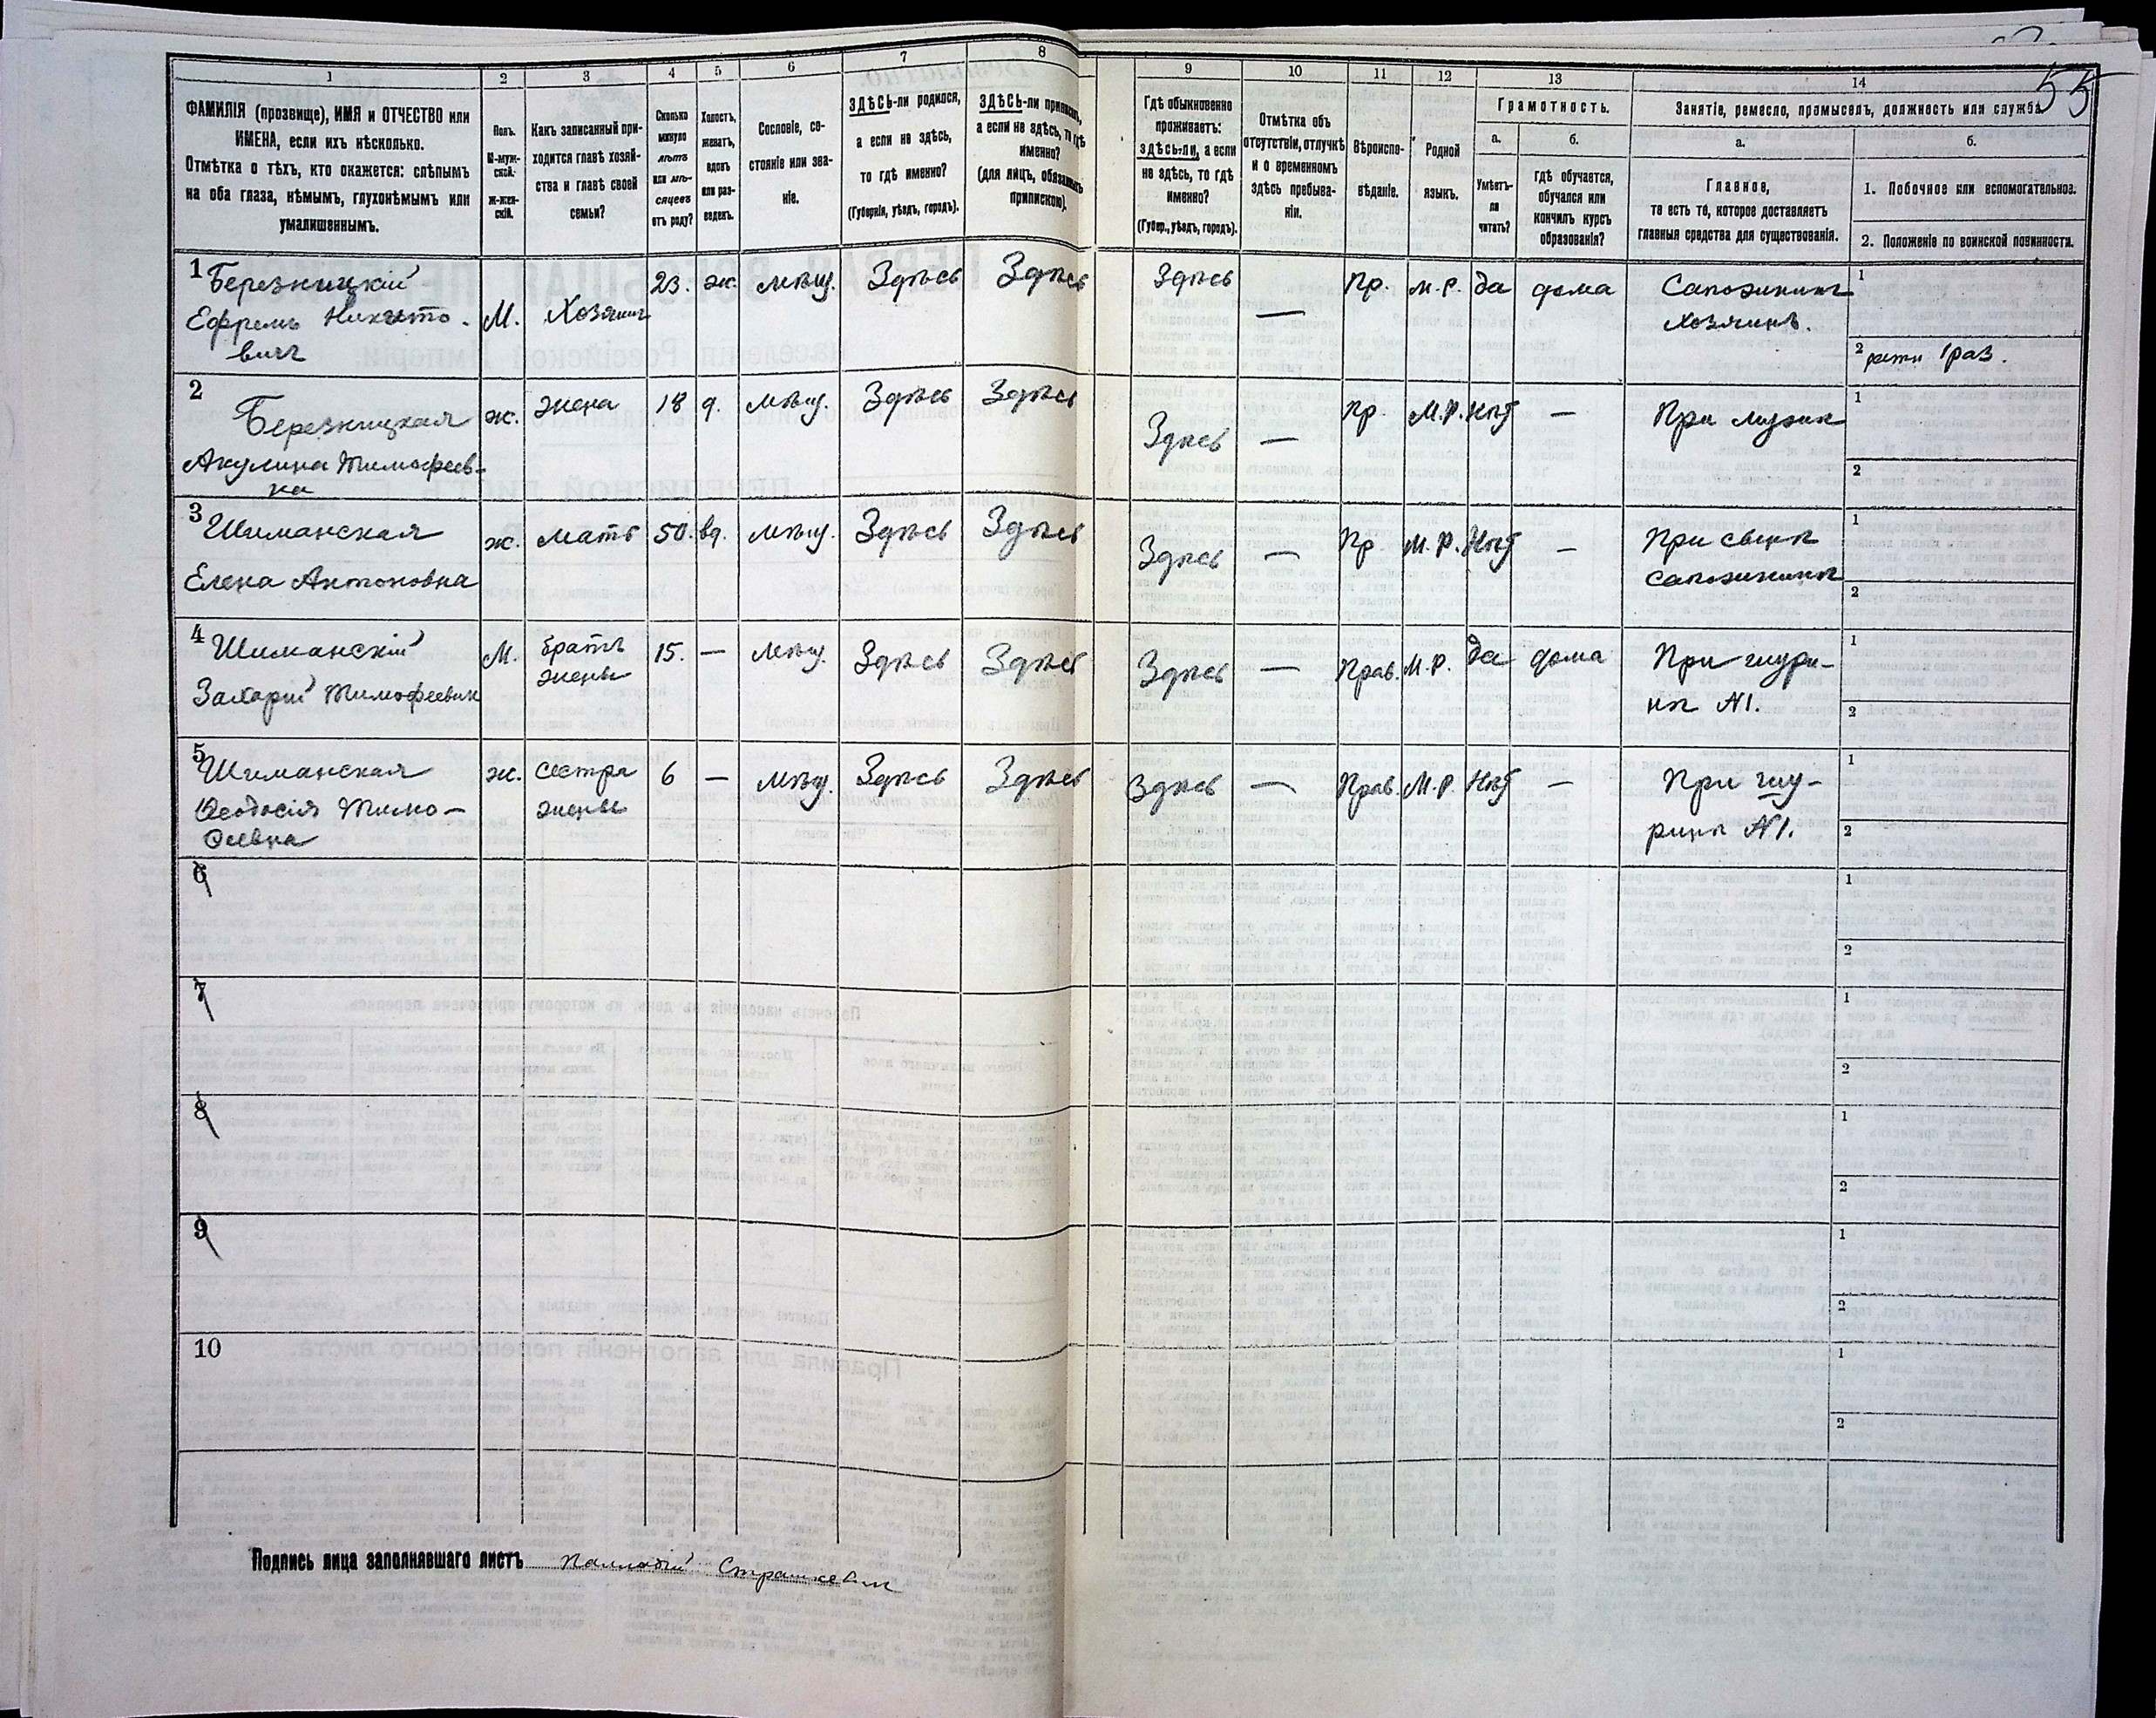 55
1
2
3
4
5
6
7
8
9
10
11
12
13
14
ФАМИЛІЯ (прозвище), ИМЯ и ОТЧЕСТВО или
ИМЕНА, если ихъ нѣсколько.
Отмѣтка о тѣхъ, кто окажется: слѣпымъ
на оба глаза, нѣмымъ, глухонѣмымъ или
умалишеннымъ.
Полъ.
М-муж-
ской.
Ж-жен-
скій.
Какъ записанный при-
ходится главѣ хозяй-
ства и главѣ своей
семьи?
Сколько
минуло
лѣтъ
или мѣ-
сяцевъ
отъ роду?
Холостъ,
женатъ,
вдовъ
или раз-
веденъ.
Сословіе, со-
стояніе или зва-
ніе.
ЗДѢСЬ-ли родился,
а если не здѣсь,
то гдѣ именно?
(Губернія, уѣздъ, городъ).
ЗДѢСЬ-ли приписанъ,
а если не здѣсь, то гдѣ
именно?
(для лицъ, обязанныхъ
припискою).
Гдѣ обыкновенно
проживаетъ:
здѣсь-ли, а если
не здѣсь, то гдѣ
именно?
(Губер., уѣздъ, городъ).
Отмѣтка объ
отсутствіи, отлучкѣ
и о временномъ
здѣсь пребыва-
ніи.
Вѣроиспо-
вѣданіе.
Родной
языкъ.
Грамотность.
а.
Умѣетъ-
ли
читать?
б.
Гдѣ обучается,
обучался или
кончилъ курсъ
образованія?
Занятіе, ремесло, промыселъ, должность или служба.
а.
Главное,
то есть то, которое доставляетъ
главныя средства для существованія.
б.
1. Побочное или вспомогательное.
2. Положеніе по воинской повинности.
1 Березницкій
Ефремъ Никито-
вичъ
М. Хозяинъ 23. ж. мѣщ. Здѣсь Здѣсь Здѣсь — Пр. М.Р. да дома
Сапожникъ
Хозяинъ.
1
2 ратн 1раз.
2
Березницкая
Акулина Тимофеев-
на
ж. жена 18 з. мѣщ. Здѣсь Здѣсь Здѣсь — Пр. М.Р. Нѣт —
При мужѣ
1
2
3 Шиманская
Елена Антоновна
ж. мать 50. вд. мѣщ. Здѣсь Здѣсь Здѣсь — Пр М.Р. Нѣт —
При сынѣ
сапожникѣ
1
2
4 Шиманскій
Захарій Тимофеевич
М. братъ
жены
15. — мѣщ. Здѣсь Здѣсь Здѣсь — Прав. М.Р. да дома
При шури-
нѣ №1.
1
2
5 Шиманская
Ѳеодосія Тимо-
ѳеевна
ж. сестра
жены
6 — мѣщ. Здѣсь Здѣсь Здѣсь — Прав. М.Р. Нѣт —
При шу-
ринѣ №1.
1
2
6
1
2
7
1
2
8
1
2
9
1
2
10
1
2
Подпись лица заполнявшаго листъ Палладій Страшкевич